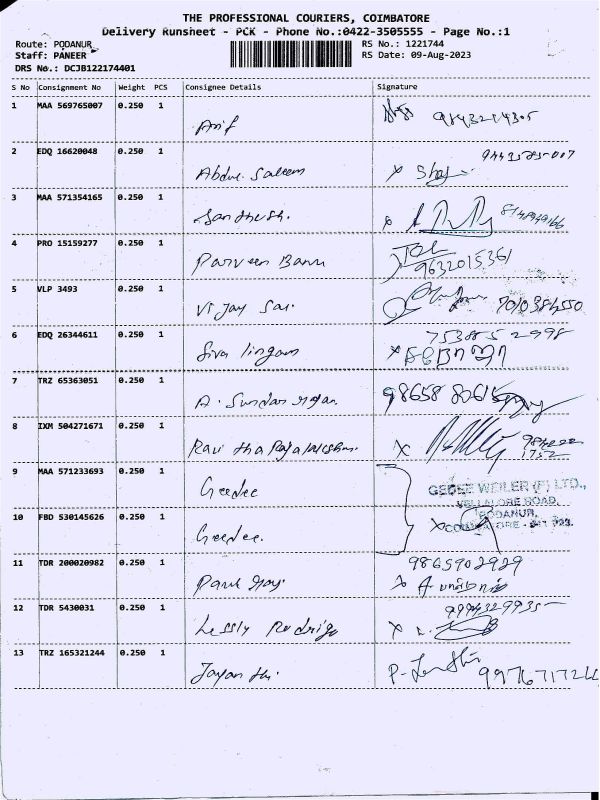 THE PROFESSIONAL COURIERS, COIMBATORE
Delivery Runsheet - PCK - Phone No.:0422-3505555 - Page No.:1
Route: PODANUR RS No.: 1221744
Staff: PANEER RS Date: 09-Aug-2023
DRS No.: DCJB122174401
S No Consignment No Weight PCS Consignee Details Signature
1 MAA 569765007 0.250 1
Arif 9843214305
2 EDQ 16620048 0.250 1
Abdul Saleem
3 MAA 571354165 0.250 1
Santhush.
4 PRO 15159277 0.250 1
Parveen Banu 9632015361
5 VLP 3493 0.250 1
Vijay Sai 7010384550
6 EDQ 26344611 0.250 1 7538852998
Siva lingam
7 TRZ 65363051 0.250 1
A. Sundar 98658 80615
8 IXM 504271671 0.250 1
Ravi
9 MAA 571233693 0.250 1
Geedee
GEDEE WEILER (P) LTD.,
VELLALORE ROAD,
PODANUR,
10 FBD 530145626 0.250 1
Geedee.
11 TDR 200020982 0.250 1 9865902929
12 TDR 5430031 0.250 1 9994329935
Lessly Rodrigo
13 TRZ 165321244 0.250 1
Jayanthi.